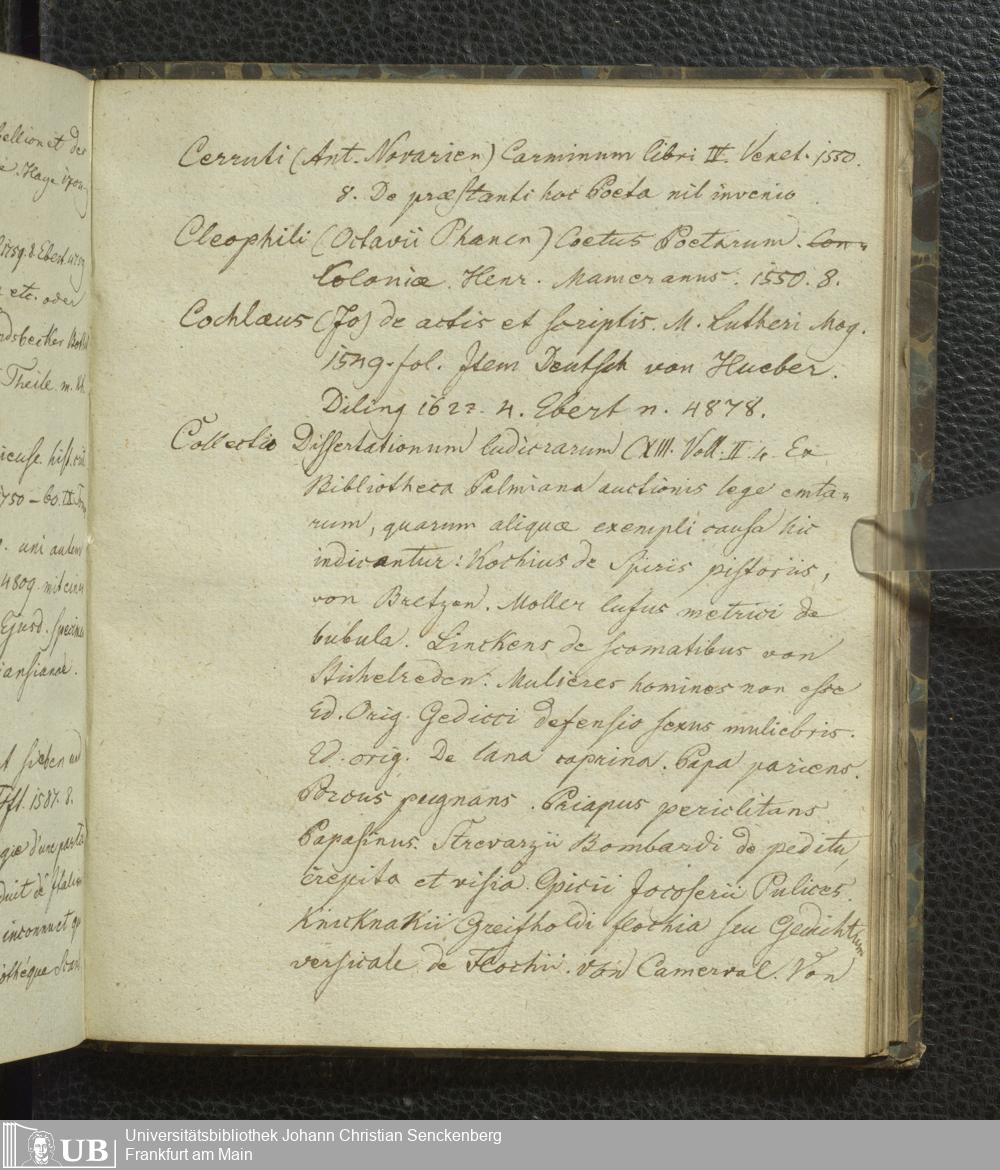 bellion et des
Haye 1702
1759. 8. Ebert 4759
etc. oder
Theile m. K.
1750 – 60. IX
uni autem
4809. mit einem
Ejusd. specimen
ansianae.
sieben und
1587. 8.
que d'un
duit de
inconnu et
othéque
Cerruti (Ant. Novarien) Carminum libri IV. Venet. 1550.
8. De præstanti hoc Poeta nil invenio
Cleophili (Octavii Phanen) Coetus Poetarum. Con-
Coloniæ. Henr. Mameranus. 1550. 8.
Cochlæus (Jo) de actis et scriptis M. Lutheri Mog.
1549. fol. Item Deutsch von Hueber.
Diling 1622. 4. Ebert n. 4878.
Collectio Dissertationum ludicrarum CXIII. Voll. II. 4. Ex
Bibliotheca Palmiana auctionis lege emta-
rum, quarum aliquæ exempli causa hic
indicantur: Kochius de Spiris pistoriis,
von Bretzen. Moller lusus metrici de
bubula. Linckens de scomatibus von
Stichelreden. Mulieres homines non esse
Ed. Orig. Gedicci defensio sexus muliebris.
Ed. orig. De lana caprina. Papa pariens.
Porcus pugnans. Priapus periclitans.
Papasinus. Strevarzii Bombardi de peditu,
crepitu et visia. Gpicii Jocoserii Pulices.
KnickKnaKii Greifholdi flochia seu Gedichtum
versicale de Flochii. Von Camerval. Von
UB
Universitätsbibliothek Johann Christian Senckenberg
Frankfurt am Main